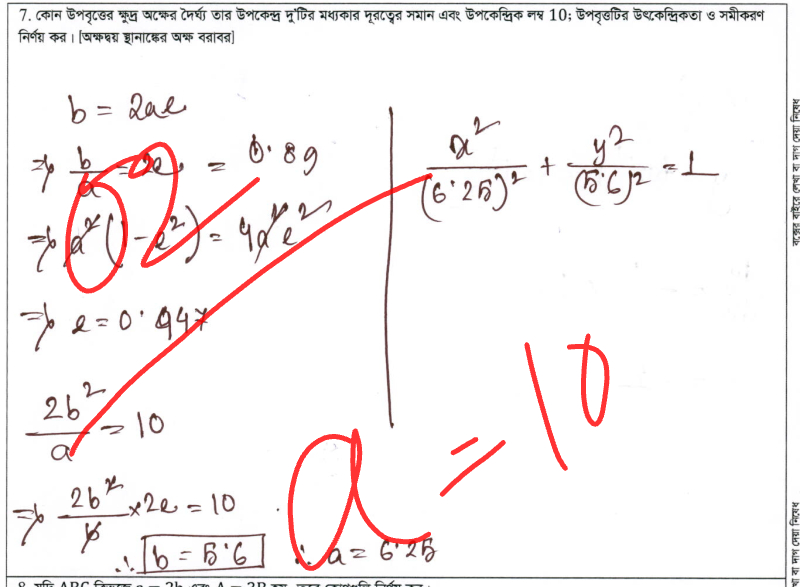 7. কোন উপবৃত্তের ক্ষুদ্র অক্ষের দৈর্ঘ্য তার উপকেন্দ্র দু'টির মধ্যকার দূরত্বের সমান এবং উপকেন্দ্রিক লম্ব 10; উপবৃত্তটির উৎকেন্দ্রিকতা ও সমীকরণ
নির্ণয় কর। [অক্ষদ্বয় স্থানাঙ্কের অক্ষ বরাবর]
b = 2ae
⇒ b/a = 2e = 0.89
⇒ a²(1-e²) = 4a²e²
⇒ e = 0.447
2b²/a = 10
⇒ 2b²/b × 2e = 10
∴ b = 5.6 ∴ a = 6.25
x²/(6.25)² + y²/(5.6)² = 1
a = 10
বক্সের বাইরে লেখা বা দাগ দেয়া নিষেধ
বা দাগ দেয়া নিষেধ